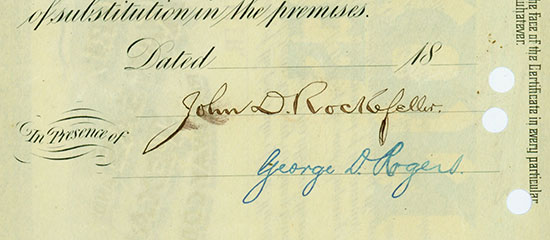 of substitution in the premises.
Dated 18
John D. Rockefeller.
In Presence of
George D. Rogers.
the face of the Certificate in every particular
whatever.